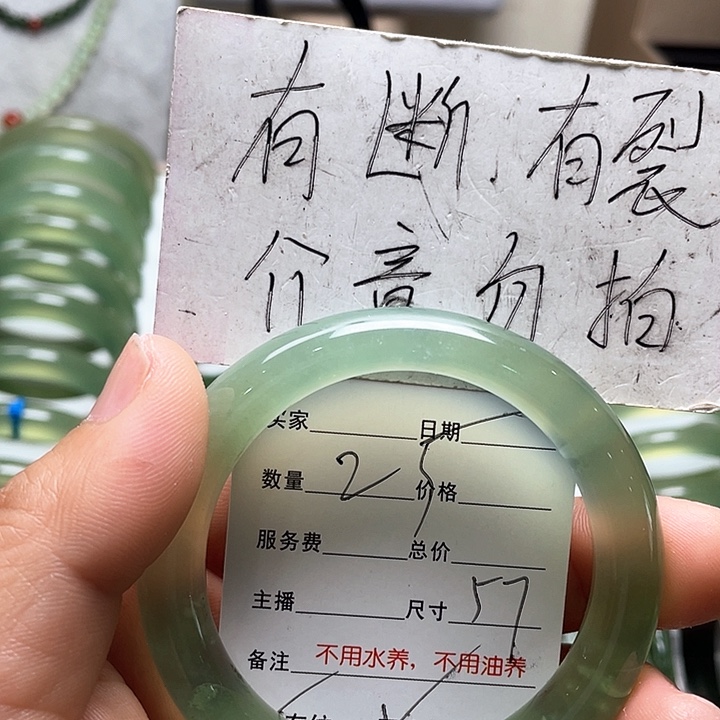 有断.有裂
介意勿拍
买家 日期
数量 2 价格
服务费 总价
主播 尺寸 57
备注 不用水养，不用油养